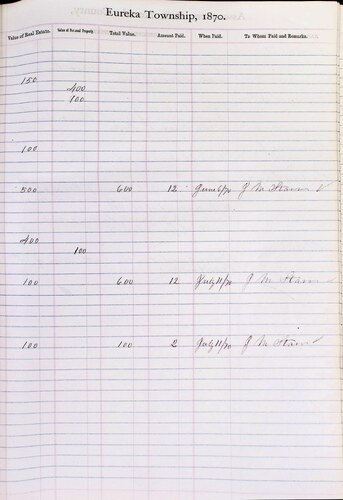 Eureka Township, 1870.
Value of Real Estate. Value of Personal Property. Total Value. Amount Paid. When Paid. To Whom Paid and Remarks.
150
400
100
100
500 600 12 June 6/70 J M
400
100
100 600 12 July 11/70 J M
100 100 2 July 11/70 J M